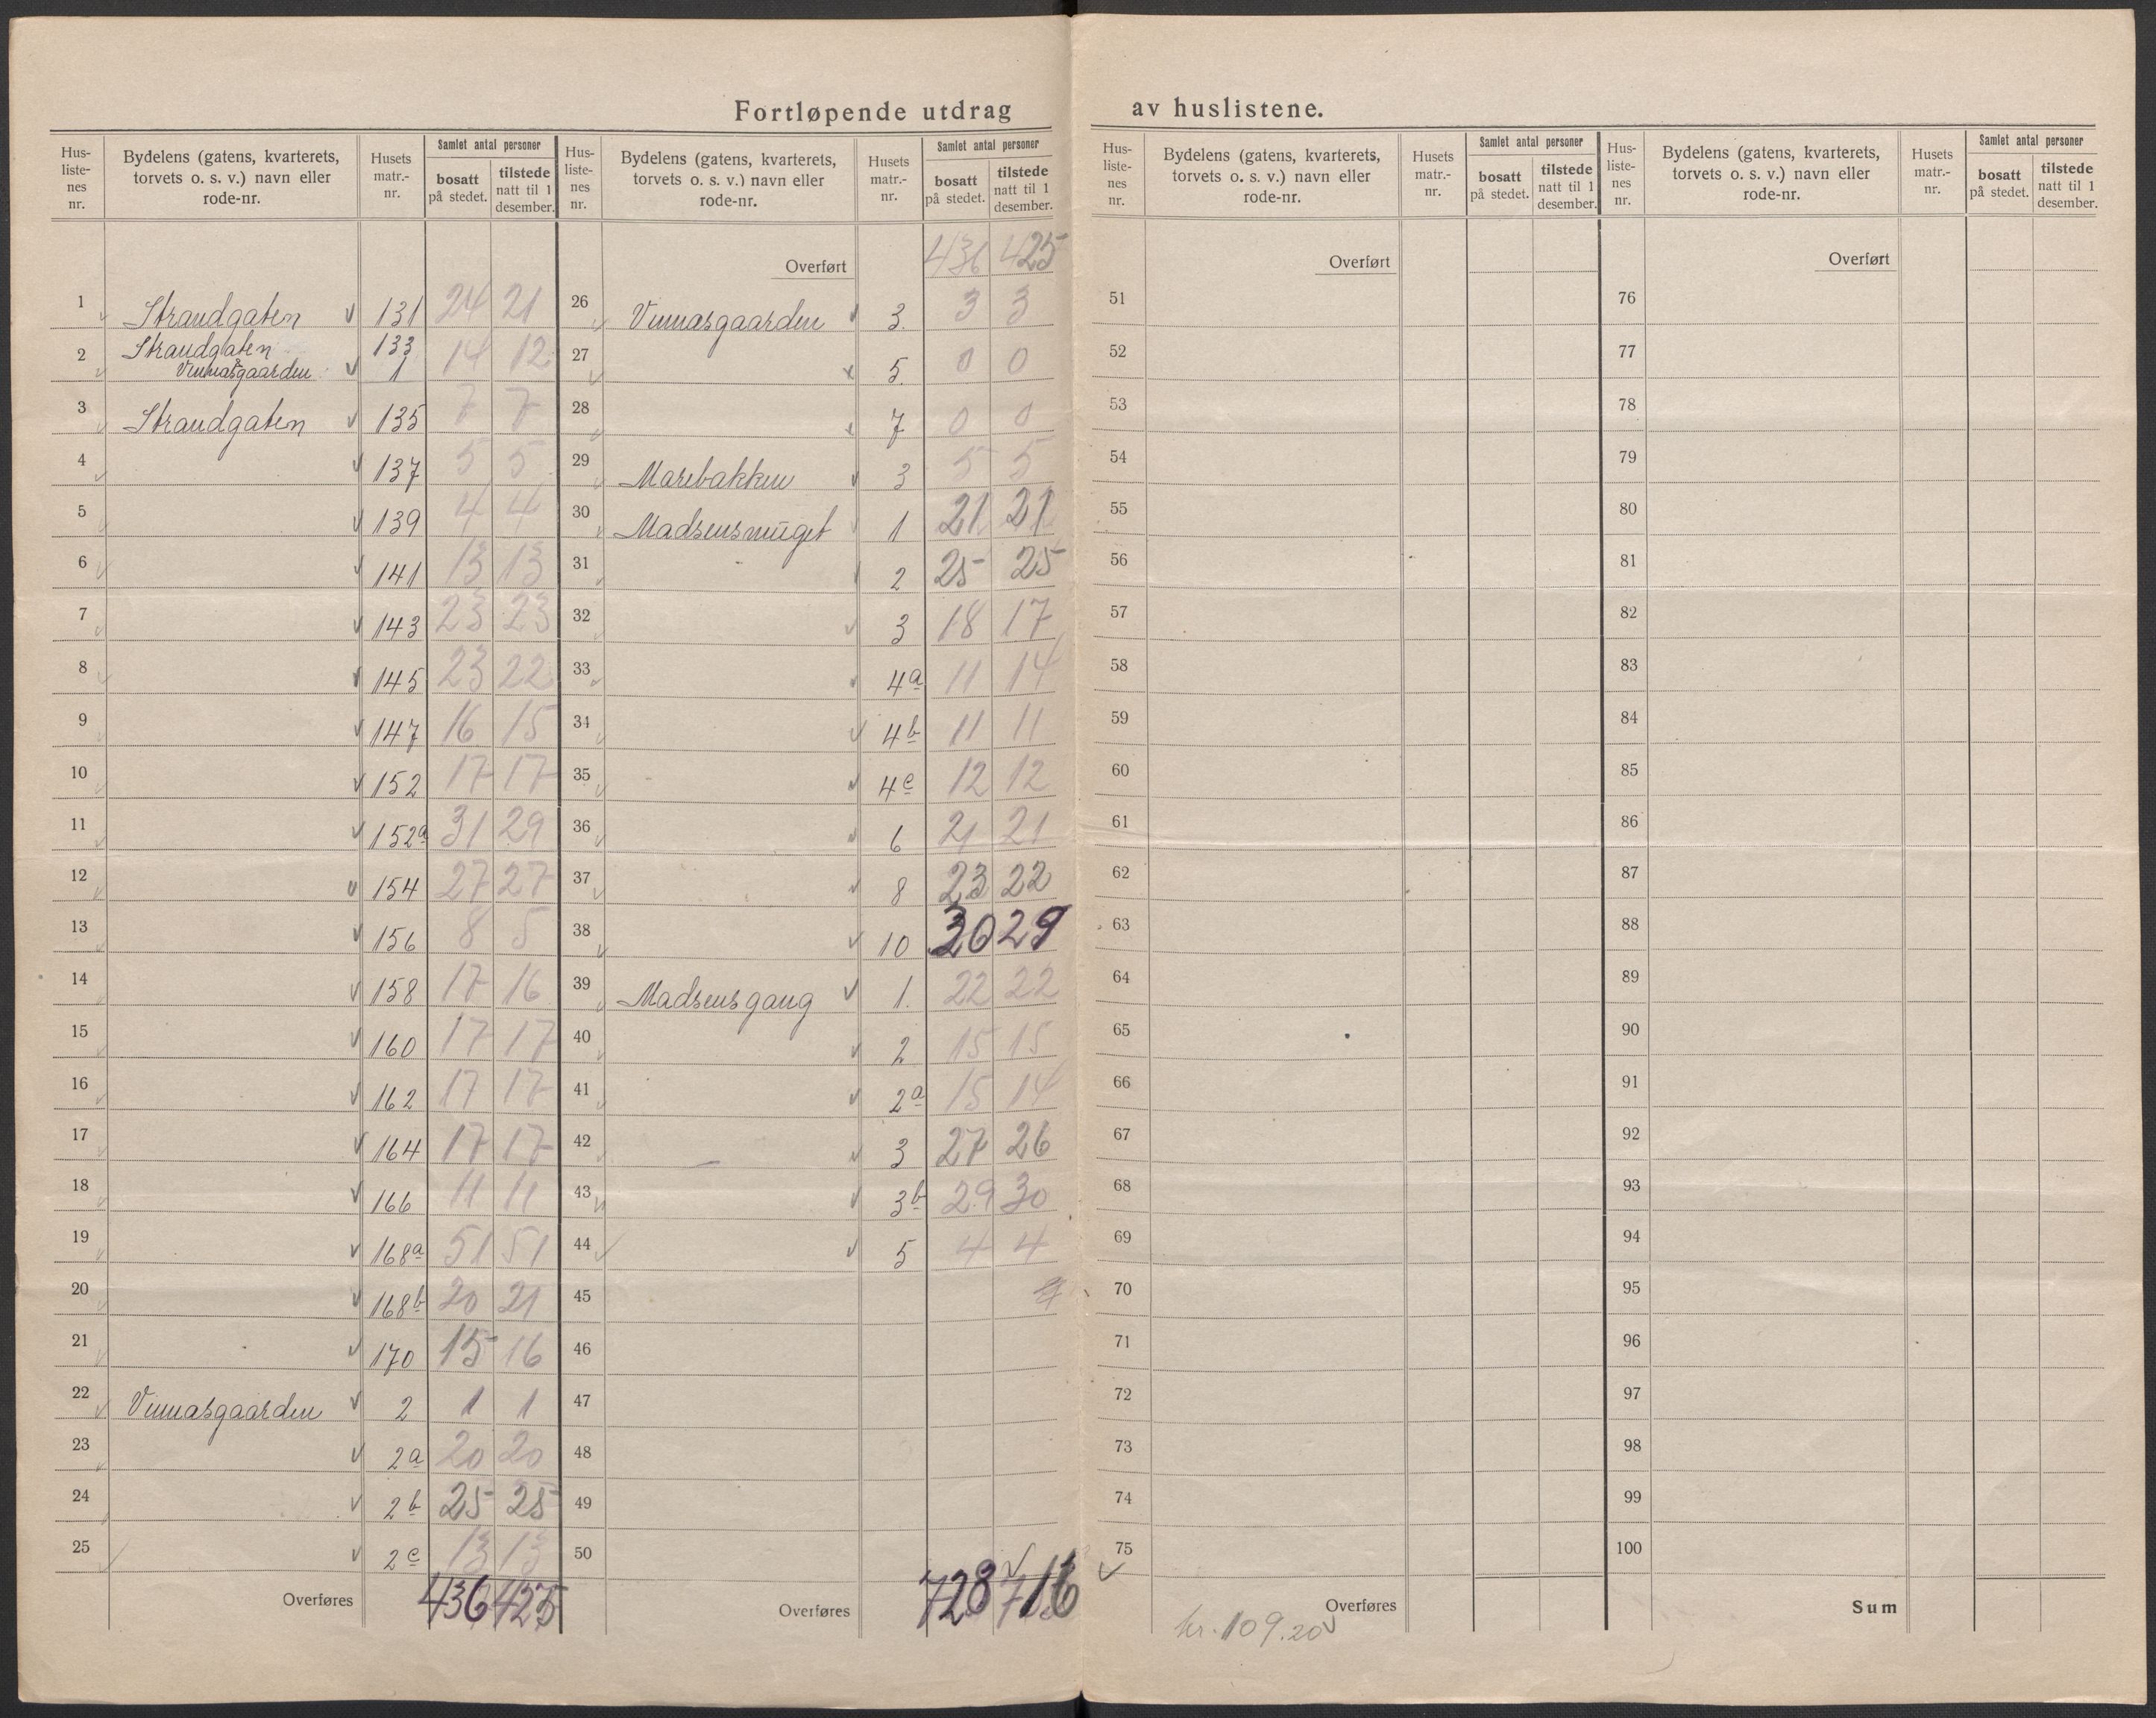 Fortløpende utdrag av huslistene.
Hus-listenes nr. | Bydelens (gatens, kvarterets, torvets o. s. v.) navn eller rode-nr. | Husets matr.-nr. | Samlet antal personer bosatt på stedet. | tilstede natt til 1 desember.
1 Strandgaten 131 24 21
2 Strandgaten 133 14 12
Vinnæsgaarden 1
3 Strandgaten 135 7 7
4 137 5 5
5 139 4 4
6 141 13 13
7 143 23 23
8 145 23 22
9 147 16 15
10 152 17 17
11 152a 31 29
12 154 27 27
13 156 8 5
14 158 17 16
15 160 17 17
16 162 17 17
17 164 17 17
18 166 11 11
19 168a 51 51
20 168b 20 21
21 170 15 16
22 Vinnæsgaarden 2 1 1
23 2a 20 20
24 2b 25 25
25 2c 13 13
Overføres 436 425
Hus-listenes nr. | Bydelens (gatens, kvarterets, torvets o. s. v.) navn eller rode-nr. | Husets matr.-nr. | Samlet antal personer bosatt på stedet. | tilstede natt til 1 desember.
Overført 436 425
26 Vinnæsgaarden 3. 3 3
27 5. 0 0
28 7 0 0
29 Marebakken 3 5 5
30 Madsensmuget 1 21 21
31 2 25 25
32 3 18 17
33 4a 11 14
34 4b 11 11
35 4c 12 12
36 6 21 21
37 8 23 22
38 10 30 29
39 Madsensgang 1. 22 22
40 2 15 15
41 2a 15 14
42 3 27 26
43 3b 29 30
44 5 4 4
45
46
47
48
49
50
Overføres 728 716
Hus-listenes nr. | Bydelens (gatens, kvarterets, torvets o. s. v.) navn eller rode-nr. | Husets matr.-nr. | Samlet antal personer bosatt på stedet. | tilstede natt til 1 desember.
Overført
51
52
53
54
55
56
57
58
59
60
61
62
63
64
65
66
67
68
69
70
71
72
73
74
75
Overføres
kr. 109.20
Hus-listenes nr. | Bydelens (gatens, kvarterets, torvets o. s. v.) navn eller rode-nr. | Husets matr.-nr. | Samlet antal personer bosatt på stedet. | tilstede natt til 1 desember.
Overført
76
77
78
79
80
81
82
83
84
85
86
87
88
89
90
91
92
93
94
95
96
97
98
99
100
Sum